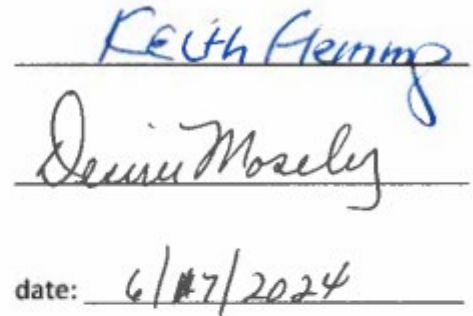 Keith Flemming
Moseley
date: 6/17/2024